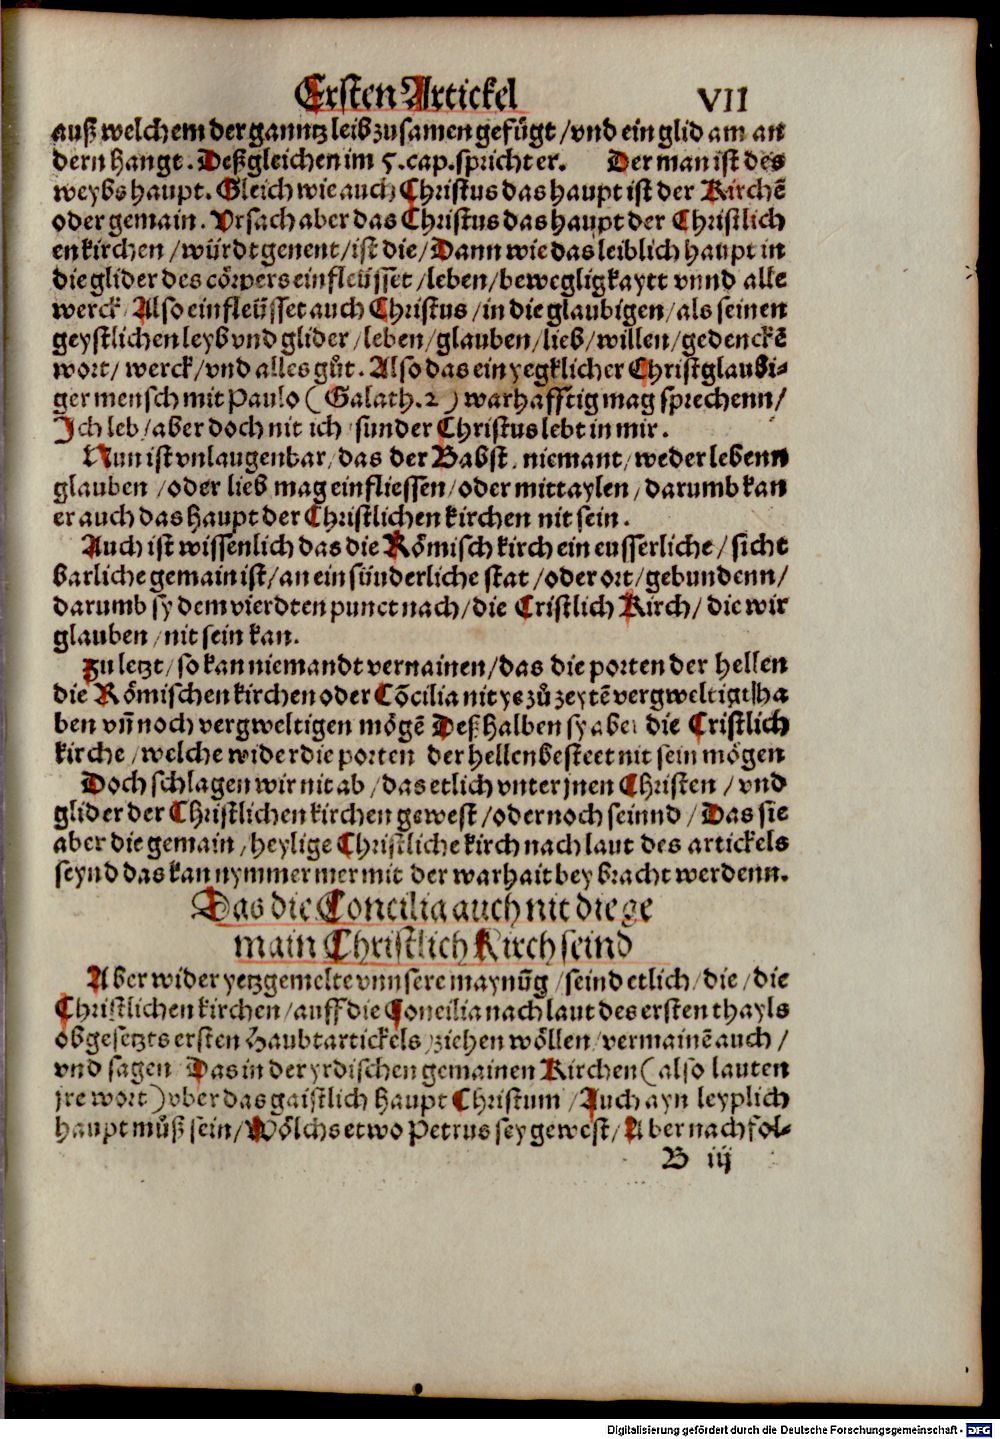 Ersten Artickel VII
auß welchem der ganntz leib zusamen gefügt /vnd ein glid am an
dern hangt. Deßgleichen im 5.cap.spricht er. Der man ist des
weybs haupt. Gleich wie auch Christus das haupt ist der Kirchē
oder gemain. Vrsach aber das Christus das haupt der Christlich
en kirchen /würdt genent/ist die/Dann wie das leiblich haupt in
die glider des cörpers einfleüsset /leben/bewegligkaytt vnnd alle
werck/Also einfleüsset auch Christus /in die glaubigen/als seinen
geystlichen leyb vnd glider /leben/glauben/lieb/willen/gedenckē
wort/ werck/vnd alles gůt. Also das ein yegklicher Christglaubi-
ger mensch mit Paulo (Galath.2) warhafftig mag sprechenn/
Ich leb/aber doch nit ich sunder Christus lebt in mir.
Nun ist vnlaugenbar/das der Babst/niemant/weder lebenn
glauben /oder lieb mag einfliessen/oder mittaylen/darumb kan
er auch das haupt der Christlichen kirchen nit sein.
Auch ist wissenlich das die Römisch kirch ein eusserliche/sicht
barliche gemain ist/an ein sünderliche stat/oder ort/gebundenn/
darumb sy dem vierdten punct nach/die Cristlich Kirch/die wir
glauben/nit sein kan.
Zu letzt/so kan niemandt vernainen/das die porten der hellen
die Römischen kirchen oder Cōcilia nit ye zů zeytē vergweltigt ha
ben vn̄ noch vergweltigen mögē Deßhalben sy aber die Cristlich
kirche/welche wider die porten der hellen besteet nit sein mögen
Doch schlagen wir nit ab/das etlich vnter jnen Christen/vnd
glider der Christlichen kirchen gewest/oder noch seinnd/Das sie
aber die gemain/heylige Christliche kirch nach laut des artickels
seynd das kan nymmer mer mit der warhait beybracht werdenn.
Das die Concilia auch nit die ge
main Christlich Kirch seind
Aber wider yetzgemelte vnnsere maynūg /seind etlich/die/die
Christlichen kirchen/auff die Concilia nach laut des ersten thayls
obgesetzts ersten Haubtartickels/ziehen wöllen/vermainē auch/
vnd sagen Das in der yrdischen gemainen Kirchen (also lauten
jre wort) vber das gaistlich haupt Christum /Auch ayn leyplich
haupt müß sein/Wölchs etwo Petrus sey gewest/Aber nachfol-
B iij
Digitalisierung gefördert durch die Deutsche Forschungsgemeinschaft - DFG